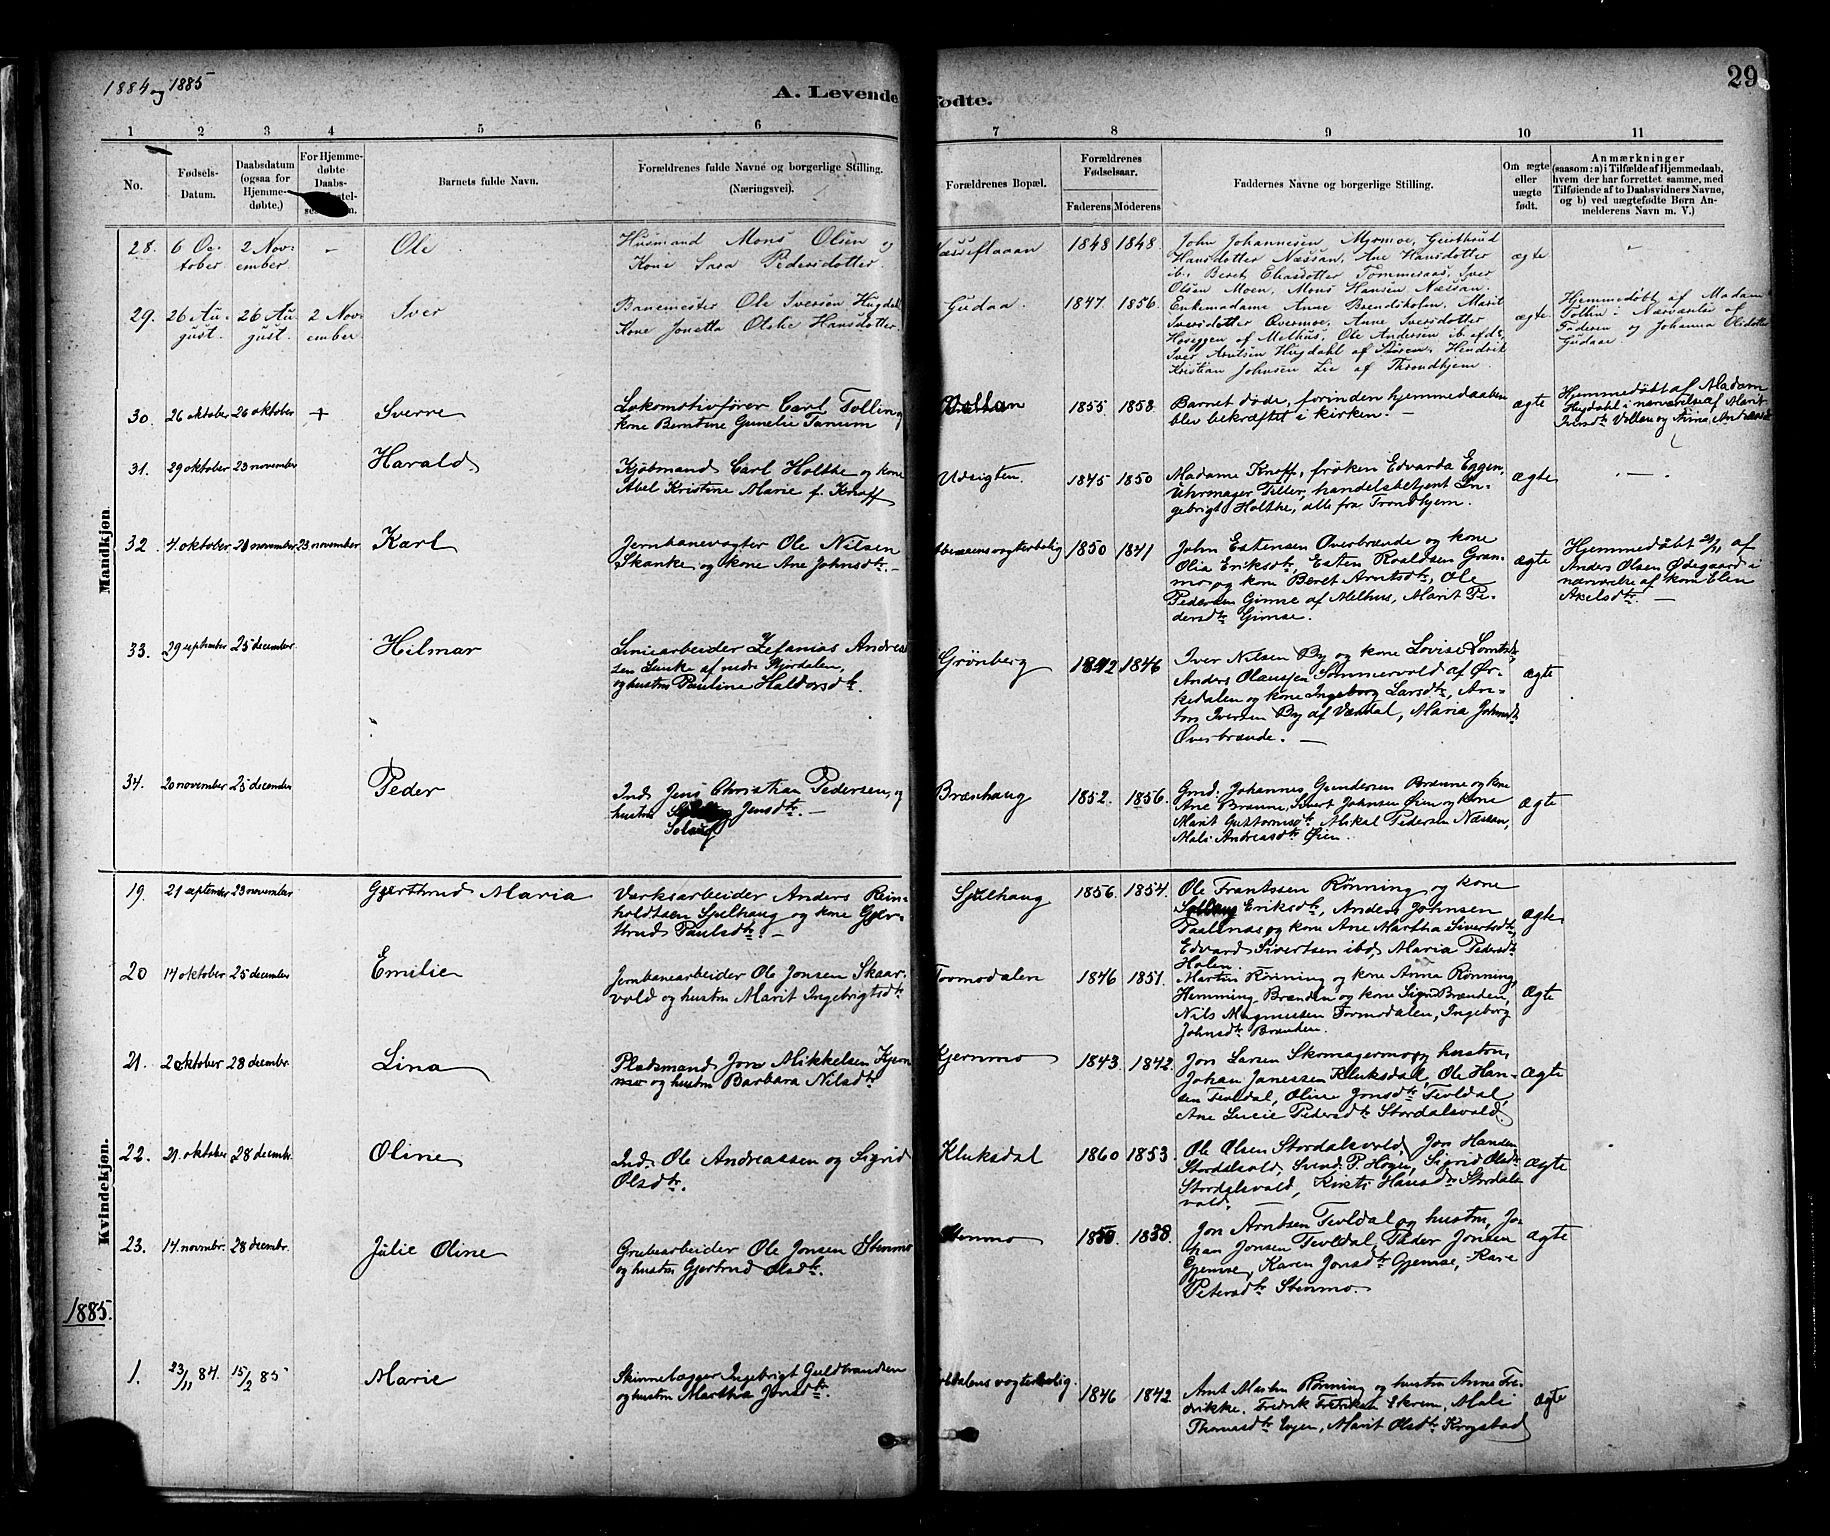 1884 og 1885
A. Levende fødte.
29
1 2 3 4 5 6 7 8 9 10 11
No.
Fødsels-Datum.
Daabsdatum (ogsaa for Hjemmedøbte.)
For Hjemmedøbte
Barnets fulde Navn.
Forældrenes fulde Navne og borgerlige Stilling. (Næringsvei).
Forældrenes Bopæl.
Forældrenes Fødselsaar.
Faderens Moderens
Faddernes Navne og borgerlige Stilling.
Om ægte eller uægte født.
Anmærkninger
(saasom: a) i Tilfælde af Hjemmedaab,
hvem der har forrettet samme, med
Tilføiende af to Daabsvidners Navne,
og b) ved uægtefødte Børn Anmelderens Navn m. V.)
Mandkjøn
28. 6 October 2 November – Ole
Husmand Mons Olsen og
Kone Sara Pedersdotter.
1848 1848
John Johannesen Myrmoe, Gjerthrud
Hansdotter Næssan, Ane Hansdotter
ib., Beret Eliasdotter Tømmeraas, Iver
Olsen Moen, Mons Hansen Nelsan.
ægte
29. 26 August. 26 August. 2 November Iver
Banemester Ole Iversen Hugdal
Kone Jonetta Olske Hansdotter.
Gudaa. 1847. 1856.
Enkemadame Anne Brendiholm, Marit
Iversdotter Øvermoe, Anne Iversdotter
Høseggen af Melhus, Ole Andersen ib.
Iver Arntsen Hugdahl af Støren. Hendrik
Kristian Johnsen Lie af Throndhjem.
ægte
Hjemmedøbt af Madam
Tollin i Nærværelse af
Faderen og Johanna Olsdotter
Gudaae.
30. 26 oktober 26 oktober + Sverre
Lokomotivfører Carl Tollin og
kone Berntine Gunelie Tanum
Voltan 1855 1858
Barnet døde, forinden hjemmedaaben
blev bekræftet i kirken. –
ægte
Hjemmedøbt af Madam
Hugdahl i nærværelse af Marit
31. 29 oktober 23 november Harald
Kjøbmand Carl Holthe og kone
Abel Kristine Marie f. Knoff
Udsigten. 1845 1850
Madame Knoff, frøken Edvarda Eggen,
Uhrmager Tiller, handelsbetjent In-
gebrigt Holthe, alle fra Trondhjem.
ægte
32. 4 oktober 23 november Karl
Jernbanevogter Ole Nilsen
Skanke og kone Ane Johnsdtr. –
1850 1841
John Estensen Overbrænde og kone
Olia Eriksdtr, Esten Roaldsen Gran-
mo, og kone Beret Arntsdtr, Ole
Pedersen Gimse af Melhus, Marit Pe-
dersdtr Gimse.
ægte
Hjemmedøbt 21/11 af
Anders Olsen Ødegaard i
nærværelse af kone Elen
Axelsdtr. –
33. 29 september 25 december Hilmar
Liniearbeider Zefanias Andreas
sen
og hustru Pauline Haldorsdtr.
Grønberg 1842 1846
Iver Nilsen By og kone Lovise
Anders Olaussen Sommervold af Ør-
kedalen og kone Ingeborg Larsdtr, An-
ton Iversen By af Værdal, Maria Johnsdtr
Øverbrænde. –
ægte
34. 20 november 25 december Peder
Ind. Jens Christian Pedersen, og
hustru Jensdtr. –
Solauf
Brænhaug 1852. 1856.
Gmd. Johannes Gundersen Brænne og kone
Ane Brænne, Sivert Johnsen Øien og kone
Marit Guttormsdtr, Mikal Pedersen Næssan,
Mali Andreasdtr Øien.
ægte
Kvindekjøn.
19. 21 september 23 november Gjerthrud Maria
Værksarbeider Anders Rein-
holdtsen Sjulhaug og kone Gjer-
thrud Paulsdtr. –
Sjulhaug 1856. 1854.
Ole Frantssen Rønning og kone
Eriksdtr, Anders Johnsen
Paalnas og kone Ane Martha Sivertsdtr,
Edvard Sivertsen ibd, Maria Pedersdtr
Holen.
ægte
20 14 oktober 25 december Emilie
Jernbanearbeider Ole Jonsen Skaar-
vold og hustru Marit Ingebrigtsdtr
Tormodalen 1846 1851.
Martin Rønning og kone Anna Rønning,
Hemming Brænden og kone Signe Brænden,
Nils Magnussen Tormodalen, Ingeborg
Johnsdtr Brænden.
ægte
21. 2 oktober 28 decembr. Lina
Pladsmand Jon Mikkelsen Kjern-
mo og hustru Barbara Nilsdtr
Kjernmo 1843 1842.
Jon Larsen Skomagermo og hustru,
Johan Janessen Kluksdal, Ole Han-
sen Tevldal, Oline Jonsdtr Tevldal,
Ane Lucie Pedersdtr Stordalsvold
ægte
22. 21. oktober 28 decembr. Oline
Ind. Ole Andreassen og Sigrid
Olsdtr.
Kluksdal 1860 1853.
Ole Olsen Stordalsvold, Jon Hansen
Stordalsvold, Svend P. Hogn, Sigrid Olsdtr
Stordalsvold, Kirsti Hansdtr Stordals
vold.
ægte
23. 14 novmbr. 28 decmbr. Julie Oline
Grubearbeider Ole Jonsen Stenmo
og hustru Gjertrud Olsdtr.
Stenmo 1850 1838.
Jon Arntsen Tevldal og hustru, Jo-
han Jonsen Tevldal, Peder Jonsen
Gjemse, Karen Jonsdtr Gjemse, Kare
Petersdtr Stenmo.
ægte
1885.
1. 23/11 84. 15/2 85 Marie
Skinnelægger Ingebrigt Guldbrandsen
og hustru Martha Jonsdtr.
1846 1842.
Arnt Martin Rønning og hustru Anne Fre-
drikke. Fredrik Fredriksen Ekren, Mali
Thomasdtr Eggen, Marit Olsdtr Krogstad
ægte